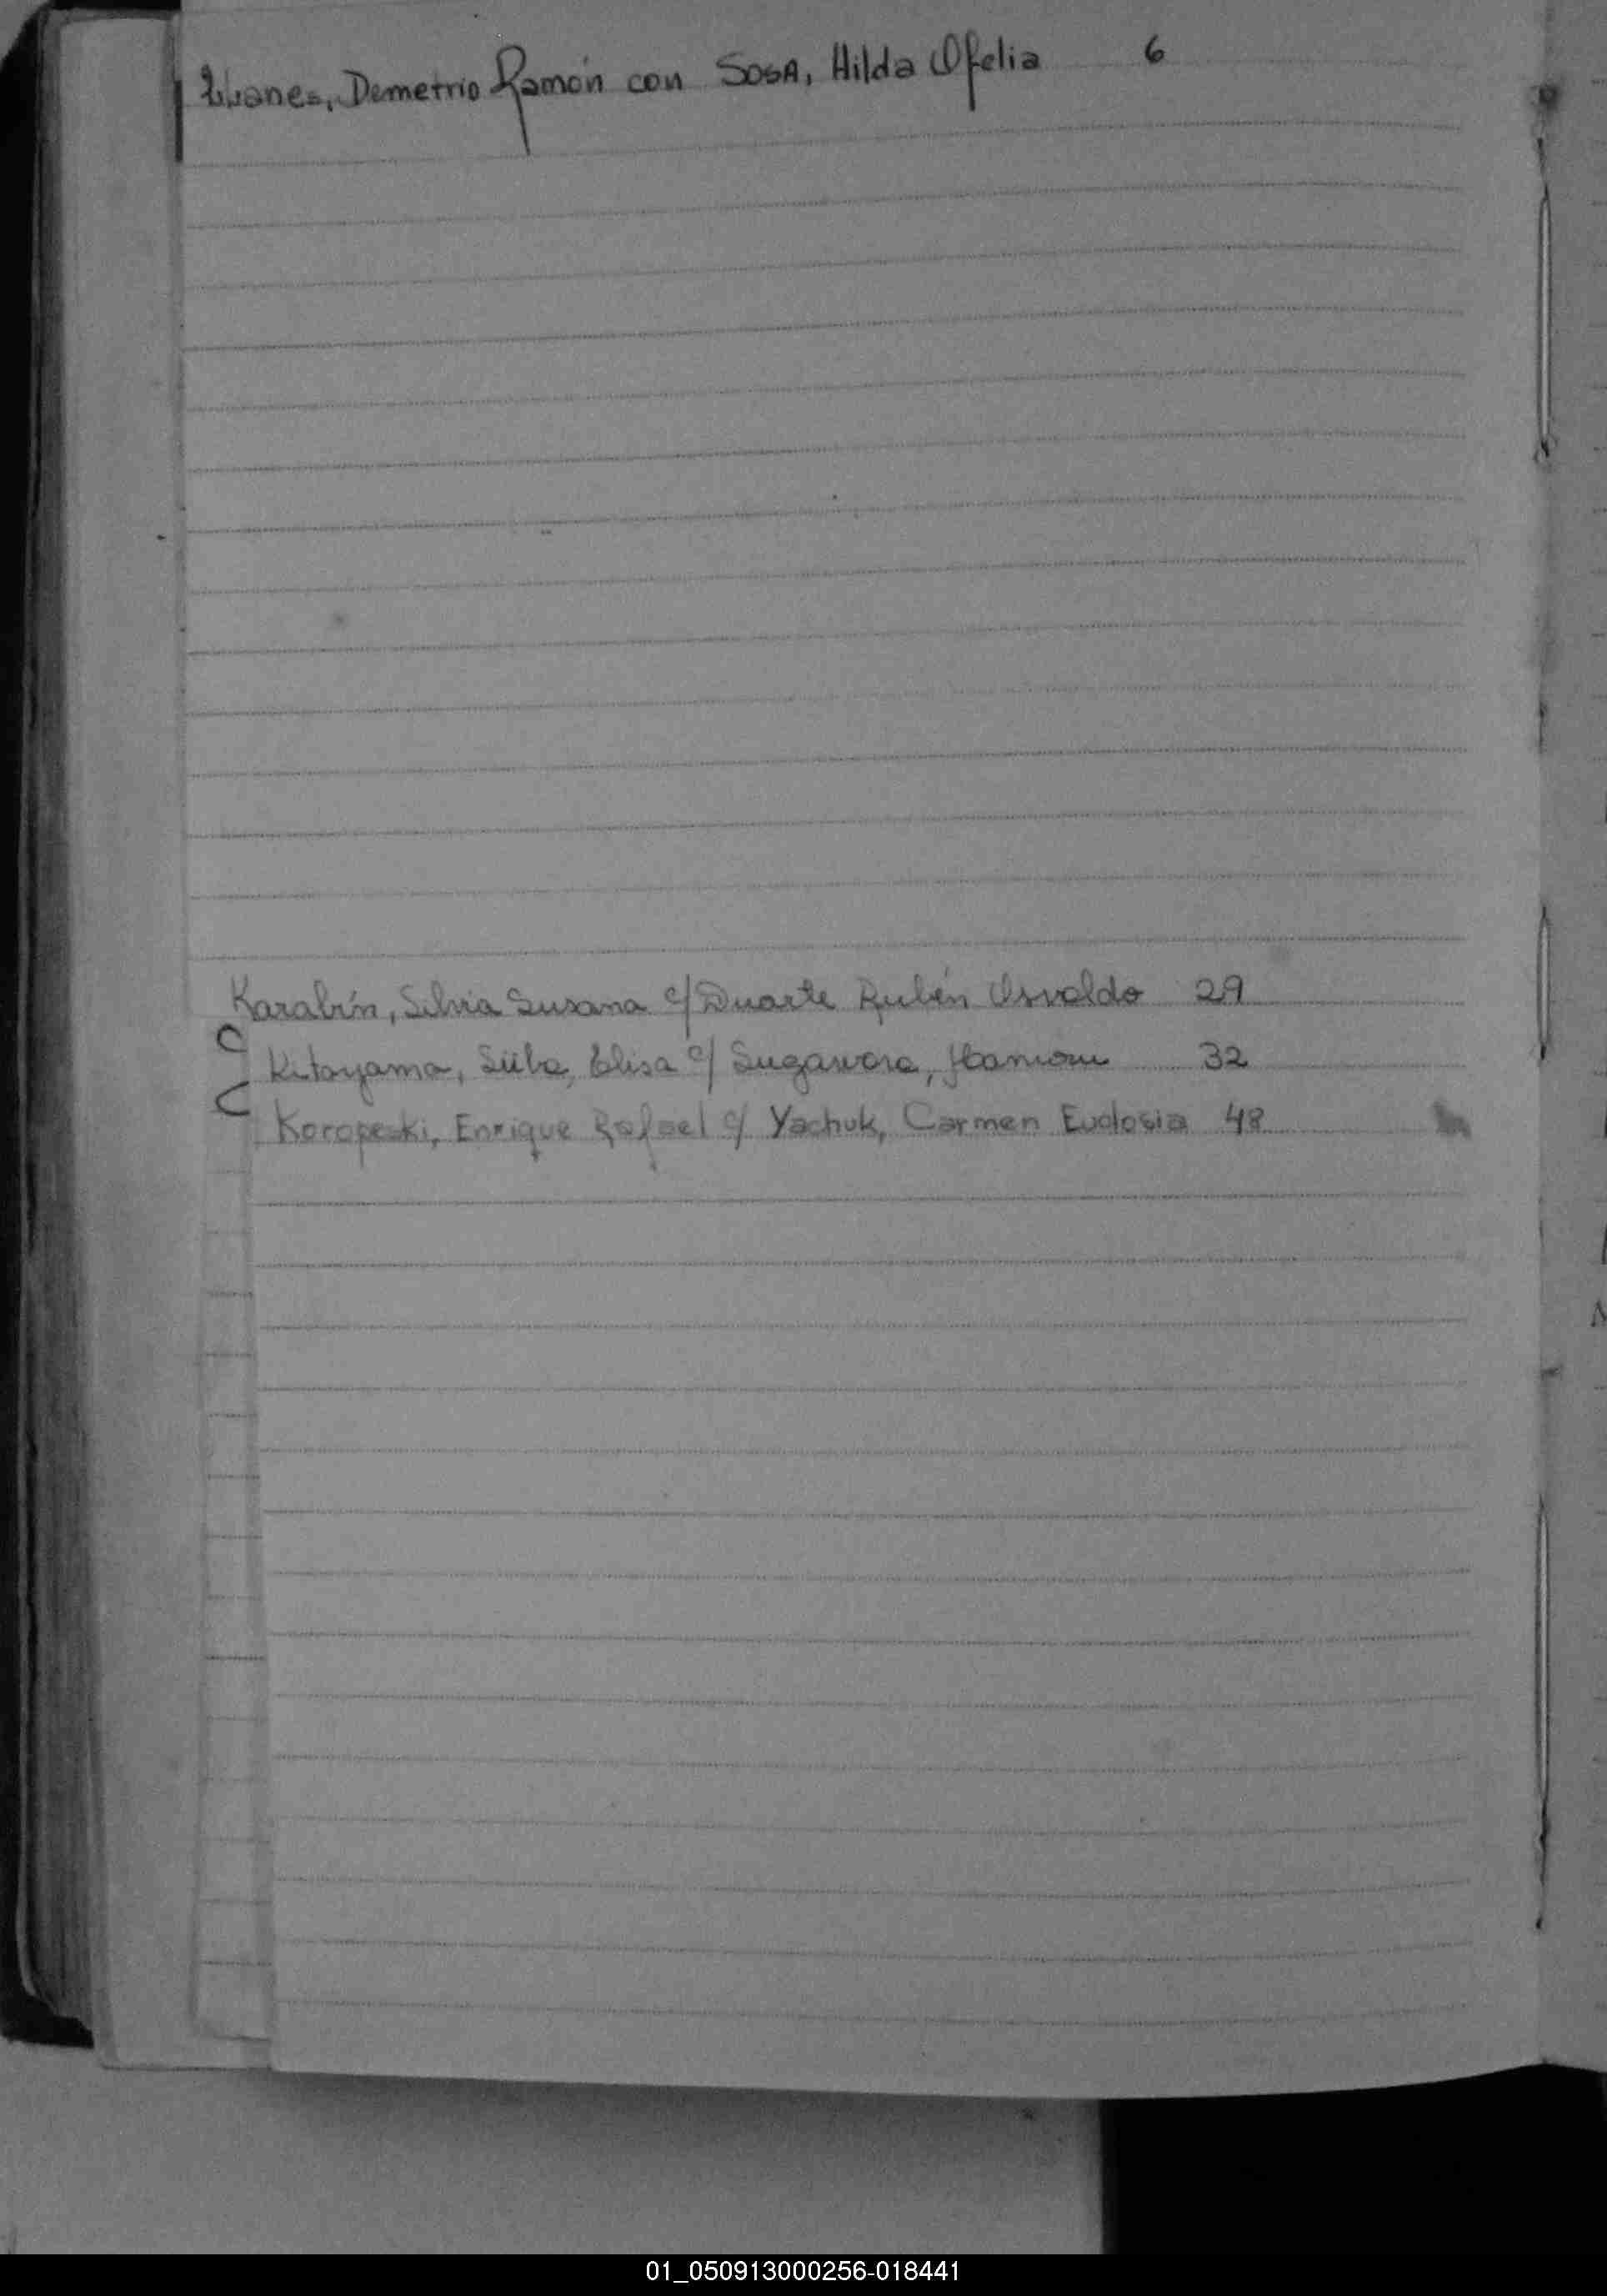 Demetrio Ramón con SOSA, Hilda Ofelia 6
Karabín, Silvia Susana c/ Duarte Rubén Osvaldo 29
Kitayama, Elisa c/ Sugawara, 32
Koropeski, Enrique Rafael c/ Yachuk, Carmen Eudosia 48
01_050913000256-018441